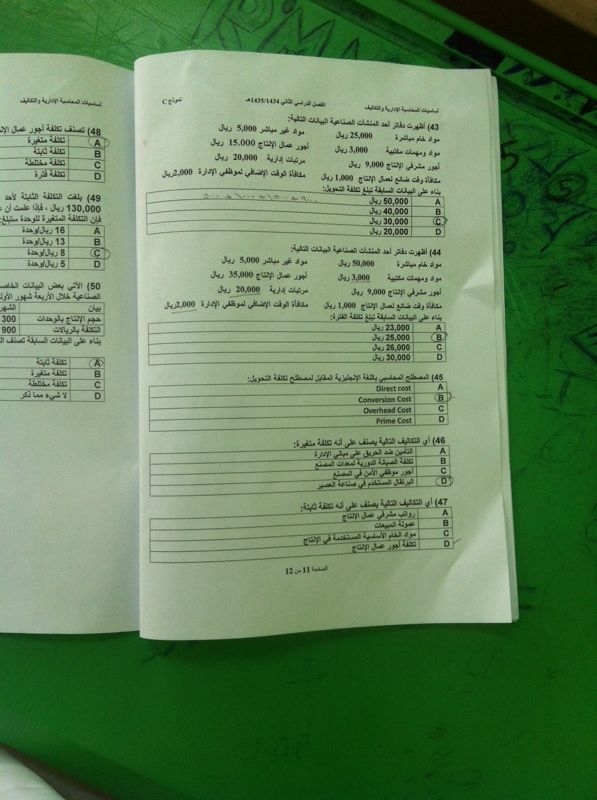 أساسيات المحاسبة الإدارية والتكاليف الفصل الدراسي الثاني 1435/1434هـ نموذج C
43) أظهرت دفاتر أحد المنشآت الصناعية البيانات التالية:
مواد خام مباشرة 25,000 ريال مواد غير مباشر 5,000 ريال
مواد ومهمات مكتبية 3,000 ريال أجور عمال الإنتاج 15,000 ريال
أجور مشرفي الإنتاج 9,000 ريال مرتبات إدارية 20,000 ريال
مكافأة وقت ضائع لعمال الإنتاج 1,000 ريال مكافأة الوقت الإضافي لموظفي الإدارة 2,000 ريال
بناء على البيانات السابقة تبلغ تكلفة التحويل:
A 50,000 ريال
B 40,000 ريال
C 30,000 ريال
D 20,000 ريال
44) أظهرت دفاتر أحد المنشآت الصناعية البيانات التالية:
مواد خام مباشرة 50,000 ريال مواد غير مباشر 5,000 ريال
مواد ومهمات مكتبية 3,000 ريال أجور عمال الإنتاج 35,000 ريال
أجور مشرفي الإنتاج 9,000 ريال مرتبات إدارية 20,000 ريال
مكافأة وقت ضائع لعمال الإنتاج 1,000 ريال مكافأة الوقت الإضافي لموظفي الإدارة 2,000 ريال
بناء على البيانات السابقة تبلغ تكلفة الفترة:
A 23,000 ريال
B 25,000 ريال
C 26,000 ريال
D 30,000 ريال
45) المصطلح المحاسبي باللغة الإنجليزية المقابل لمصطلح تكلفة التحويل:
A Direct cost
B Conversion Cost
C Overhead Cost
D Prime Cost
46) أي التكاليف التالية يصنف على أنه تكلفة متغيرة:
A التأمين ضد الحريق على مباني الإدارة
B تكلفة الصيانة الدورية لمعدات المصنع
C أجور موظفي الأمن في المصنع
D البرتقال المستخدم في صناعة العصير
47) أي التكاليف التالية يصنف على أنه تكلفة ثابتة:
A رواتب مشرفي عمال الإنتاج
B عمولة المبيعات
C مواد الخام الأساسية المستخدمة في الإنتاج
D تكلفة أجور عمال الإنتاج
الصفحة 11 من 12
أساسيات المحاسبة الإدارية والتكاليف
48) تصنف تكلفة أجور عمال
A تكلفة متغيرة
B تكلفة ثابتة
C تكلفة مختلطة
D تكلفة فترة
49) بلغت التكلفة الثابتة لأحد
130,000 ريال ، فإذا علمت أن
فإن التكلفة المتغيرة للوحدة ستبلغ
A 16 ريال/وحدة
B 13 ريال/وحدة
C 8 ريال/وحدة
D 5 ريال/وحدة
50) الآتي بعض البيانات
الصناعية خلال الأربعة شهور
بيان
حجم الإنتاج بالوحدات 300
التكلفة بالريالات 900
بناء على البيانات السابقة تصنف
A تكلفة ثابتة
B تكلفة متغيرة
C تكلفة مختلطة
D لا شيء مما ذكر